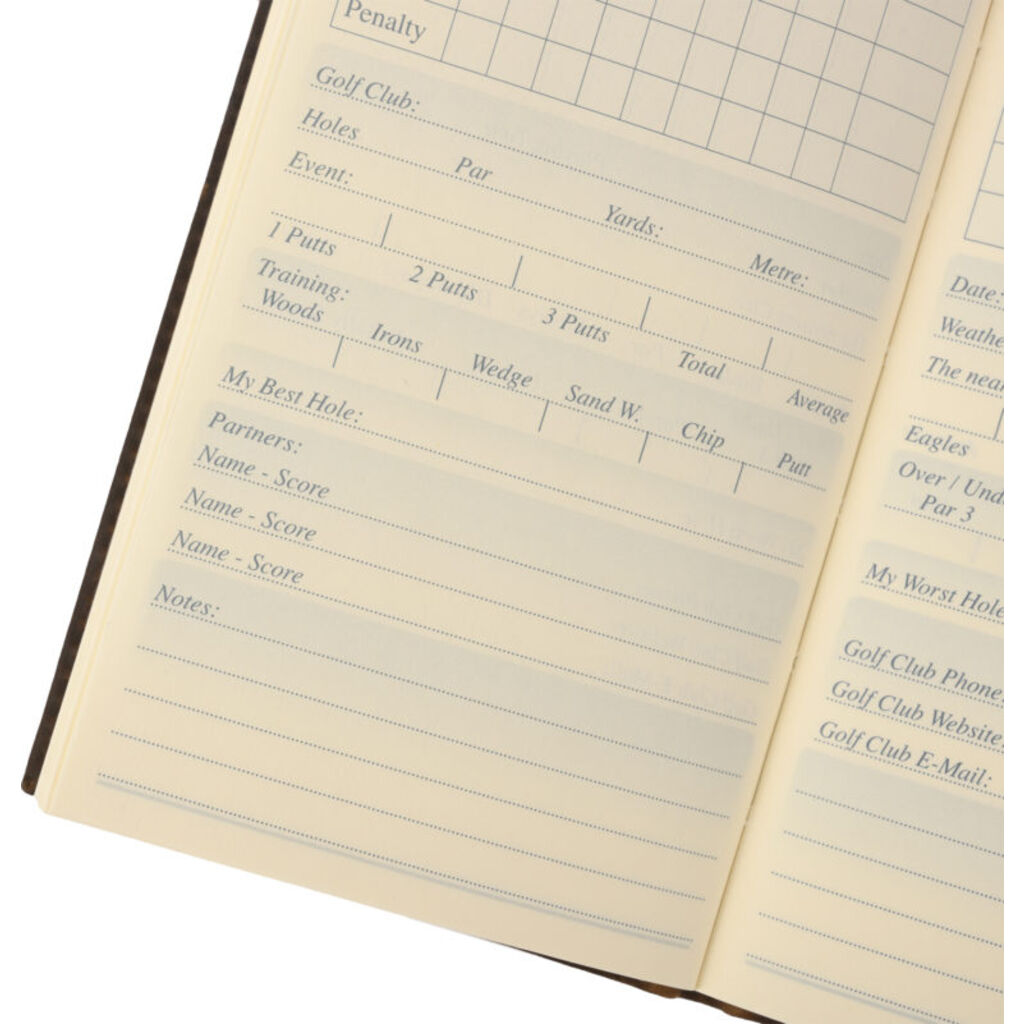 Penalty
Golf Club:
Holes Par Yards: Metre:
Event:
1 Putts 2 Putts 3 Putts Total Average
Training:
Woods Irons Wedge Sand W. Chip Putt
My Best Hole:
Partners:
Name - Score
Name - Score
Name - Score
Notes:
Date:
Weathe
The near
Eagles
Over / Und
Par 3
My Worst Hole
Golf Club Phone:
Golf Club Website:
Golf Club E-Mail: